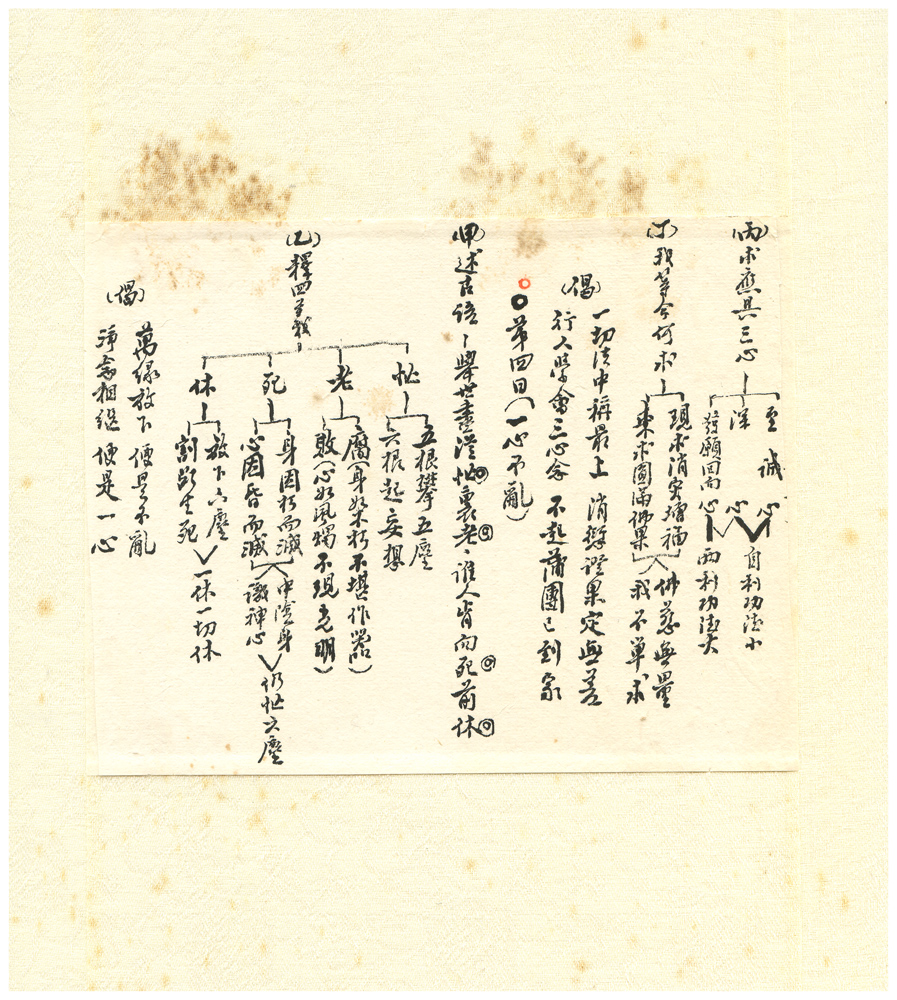 (丙)求應具三心
至誠心
深心
發願回向心
自利功德小
兩利功德大
(丁)我等今何求
現求消灾增福
來求圓滿佛果
佛慈無量
我不單求
(偈)
一切法中稱最上 消愆證果定無差
行人學會三心念 不起蒲團已到家
第四日(一心不亂)
(甲)述古語、舉世盡從忙裏老、誰人肯向死前休
(乙)釋四重義
忙
五根攀五塵
六根起妄想
老
腐(身如木朽不堪作器)
敗(心如風燭不現光明)
死
身因朽而滅
心因昏而滅
中陰身
識神心
仍忙六塵
休
放下六塵
割斷生死
一休一切休
(偈)
萬緣放下 便是不亂
淨念相繼 便是一心